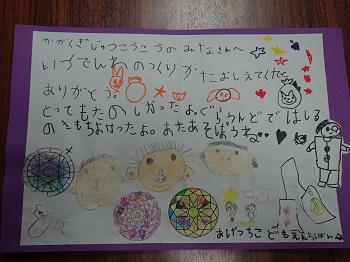 かがくぎじゅつこうこうの みなさんへ
いつでんわ のつくりか
たおしえてくれて
ありがとう。
とってもたのしかったよ。ぐらうんどで はしる
のきもちよかったよ。またあそぼうね
あげっちこ どもえん